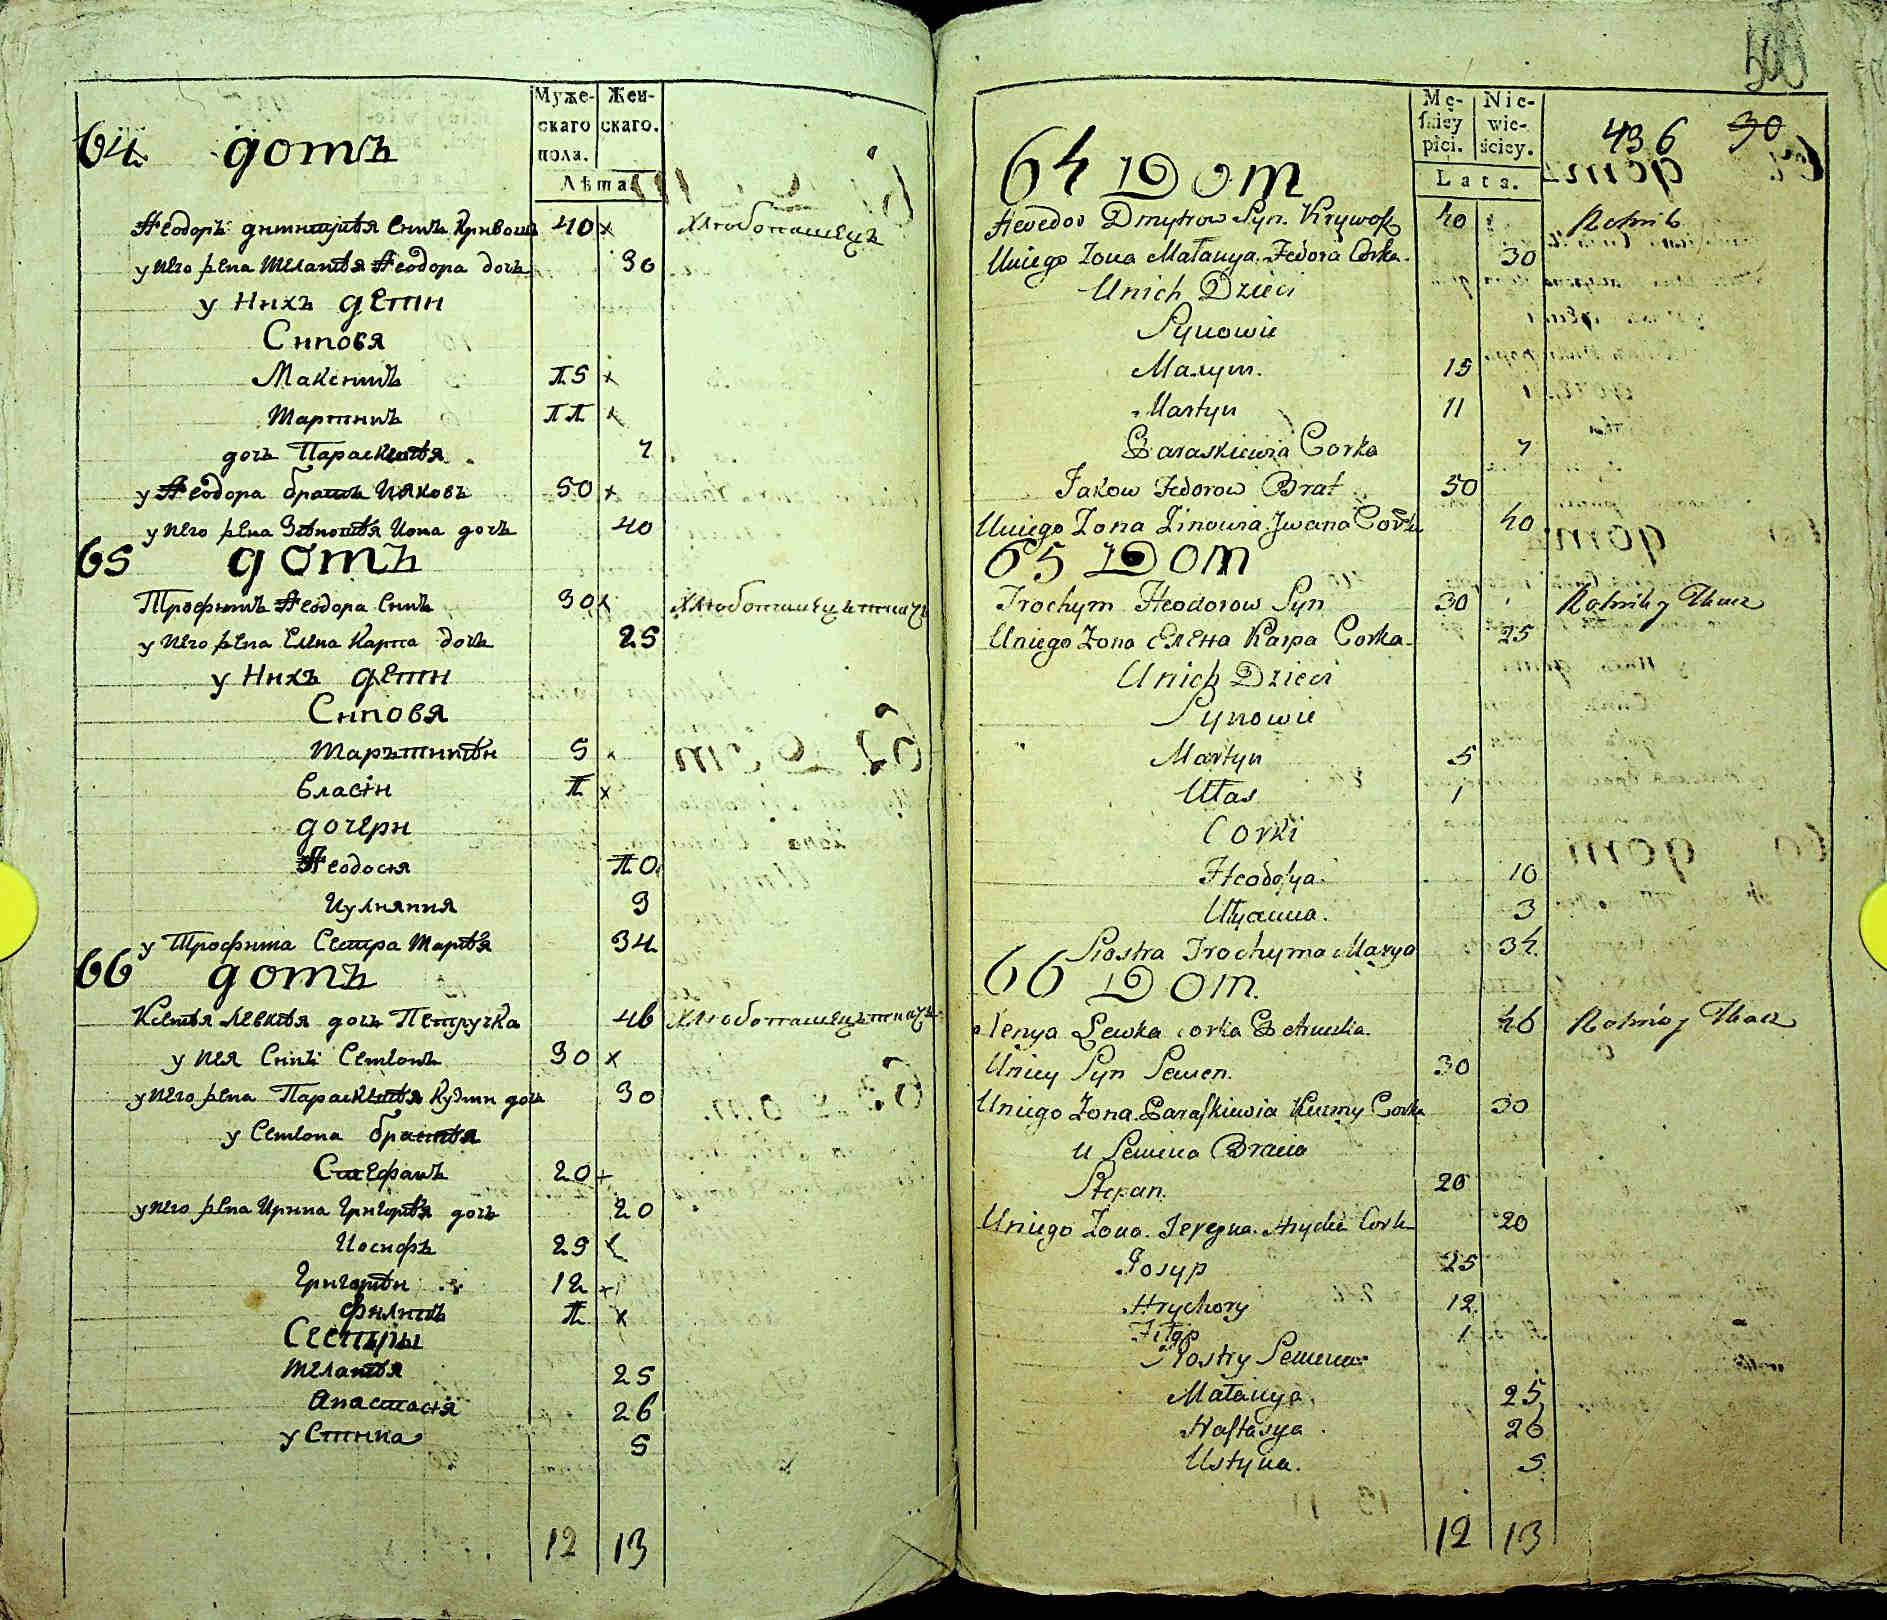 Муже-
скаго
пола.
Жен-
скаго.
Лѣта
64 домъ
Ѳеодоръ Димитрїя синъ 40 х Хлѣбопашецъ
у него жена Меланїя Ѳеодора дочь 30
у Нихъ дети
Синовя
Максимъ 15 х
Мартинъ 11 х
дочь Параскевїя 7
у Ѳеодора братъ Ияковъ 50 х
у него жена Зѣновїя Иона дочь 40
65 домъ
Трофимъ Ѳеодора Синъ 30 х Хлѣбопашецъ ткачъ
у него жена Елена Карпа дочь 25
у Нихъ дети
Синовя
Марътинїи 5 х
Власїи 1 х
дочери
Ѳеодосїя 10
Иулияния 3
у Трофима Сестра Марїя 34
66 домъ
Ксенїя Левкїя дочь Петручка 46 Хлѣбопашецъ ткачъ
у нея Синъ Семїонъ 30 х
у него жена Параскевїя Кузми дочь 30
у Семїона братїя
Стефанъ 20 х
у него жена Ирина Григорїя дочь 20
Иосифъ 25 х
Григорїи 12 х
Филипъ 1 х
Сестры
Меланїя 25
Анастасїя 26
уСтина 5
12 13
Mę-
skiey
płci.
Nie-
wie-
ściey.
Lata.
436 30
64 Dom
Heodor Dmytrow Syn 40 Rolnik
Uniego Zona Małanya Fedora Corka 30
Unich Dzieci
Synowie
Maxym 15
Martyn 11
Paraskiewia Corka 7
Jakow Fedorow Brat 50
Uniego Zona Zinowia Jwana Corka 40
65 Dom
Trochym Heodorow Syn 30 Rolnik y Tkacz
Uniego Zona Елена Karpa Corka 25
Unich Dzieci
Synowie
Martyn 5
Ułas 1
Corki
Heodosya 10
Ulyanna 3
Siostra Trochyma Marya 34
66 Dom
Xenya Lewka corka 46 Rolnik y Tkacz
Uniey Syn Semen 30
Uniego Zona Paraskiewia Kuzmy Corka 30
u Semena Bracia
Stepan 20
Uniego Zona Corka 20
Josyp 25
Hryhory 12
Fiłyp 1
Siostry Semena
Małanya 25
Nastasya 26
Ustyna 5
12 13